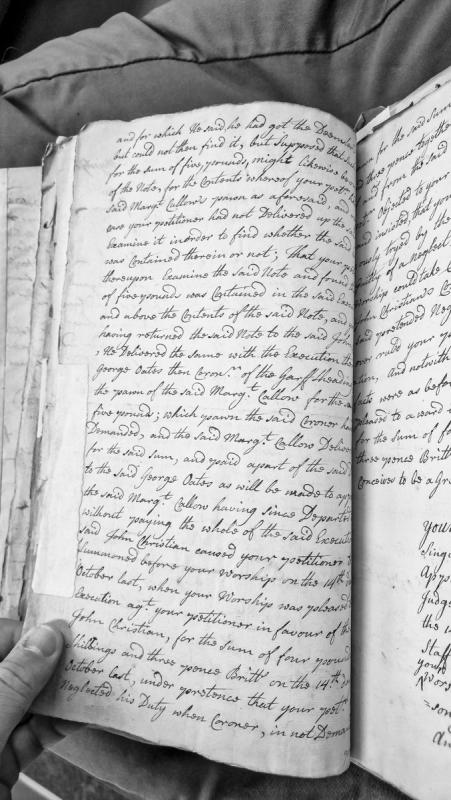 and for which He said he had got the Deemsters
but could not then find it, but Supposed that said
for the sum of five pounds, might likewise be
of the Note, for the Contents whereof your petr. had
said Margt. Callow's pawn as aforesaid and
ere your petitioner had not Delivered up the said
Examine it in order to find whether the said
was Contained therein or not; that your pe
thereupon Examine the Said Note and found t
of five pounds was Contained in the said Exe
and above the Contents of the said Note, and y
having returned the said Note to the said John
, He Delivered the same with the Execution the
George Oates then Coronr. of the Garff Sheading
the pawn of the said Margt. Callow for the
five pounds; which pawn the said Coroner ha
Demanded, and the said Margt. Callow Deliver
for the said sum, and paid a part of the said
to the said George Oates as will be made to app
the said Margt. Callow having since Departed
without paying the whole of the said Executi
said John Christian caused your petitioner
Summoned before your Worships on the 14th
October last, when your Worships was pleased
Execution agt. your petitioner in favour of the
John Christian, for the Sum of four pounds
Shillings and three pence Brittsh on the 14th d
October last, under pretence that your petr.
Neglected his Duty when Coroner, in not Dema
for the said Sum
three pence togethe
from the said
objected to your
and insisted that you
by the
of a Neglect
Worships could take C
John Christian's
said pretended Neg
your
And notwith
were as before
pleased to award
for the Sum of fo
three pence Britt
Conceives to be a Gr
your
Singu
Judge
the 14
Staff
your
Wors